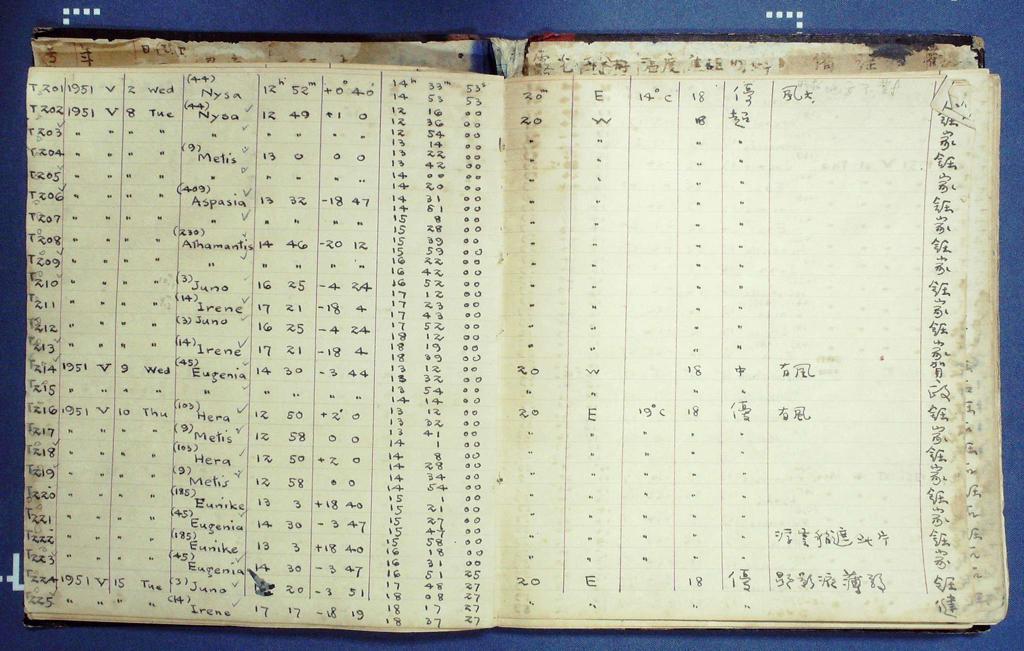 T201 1951 V 2 Wed (44) Nysa 12h 52m +0° 40' 14h 33m 53s 20m E 14°C 18 優 風大
14 53 53
T202 1951 V 8 Tue (44) Nysa 12 49 +1 0 12 16 00 20 W 18 超 鈺
12 36 00
T203 " " " " " " " 12 54 00 " " " " 家
13 14 00
T204 " " (9) Metis 13 0 0 0 13 22 00 " " " " 鈺
13 42 00
T205 " " " " " " " 14 00 00 " " " " 家
14 20 00
T206 " " (409) Aspasia 13 32 -18 47 14 31 00 " " " " 鈺
14 51 00
T207 " " " " " " " 15 8 00 " " " " 家
15 28 00
T208 " " (230) Athamantis 14 46 -20 12 15 39 00 " " " " 鈺
15 59 00
T209 " " " " " " " 16 22 00 " " " " 家
16 42 00
T210 " " (3) Juno 16 25 -4 24 16 52 00 " " " " 鈺
17 12 00
T211 " " (14) Irene 17 21 -18 4 17 23 00 " " " " 家
17 43 00
T212 " " (3) Juno 16 25 -4 24 17 52 00 " " " " 鈺
18 12 00
T213 " " (14) Irene 17 21 -18 4 18 19 00 " " " " 家
18 39 00
T214 1951 V 9 Wed (45) Eugenia 14 30 -3 44 13 12 00 20 W 18 中 有風
13 32 00
T215 " " " " " " " 13 54 00 " " " " 政
14 14 00
T216 1951 V 10 Thu (103) Hera 12 50 +2° 0' 13 12 00 20 E 19°C 18 優 有風 鈺
13 32 00
T217 " " (9) Metis 12 58 0 0 13 41 00 " " " " 家
14 1 00
T218 " " (103) Hera 12 50 +2 0 14 8 00 " " " " 鈺
14 28 00
T219 " " (9) Metis 12 58 0 0 14 34 00 " " " " 家
14 54 00
T220 " " (185) Eunike 13 3 +18 40 15 1 00 " " " " 鈺
15 21 00
T221 " " (45) Eugenia 14 30 -3 47 15 27 00 " " " " 家
15 47 00
T222 " " (185) Eunike 13 3 +18 40 15 58 00 " " " " 鈺
16 18 00
T223 " " (45) Eugenia 14 30 -3 47 16 31 00 " " " " 家
16 51 25
T224 1951 V 15 Tue (3) Juno 20 -3 51 17 48 27 20 E 18 優 鈺
18 08 27
T225 " " (14) Irene 17 17 -18 19 18 17 27 " " " " 健
18 37 27